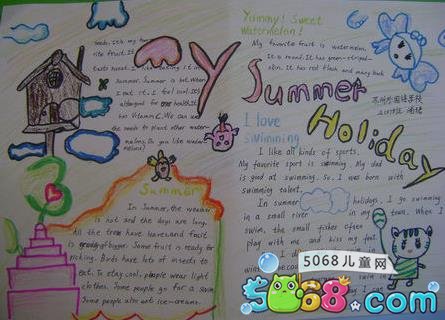 seeds. It's my
rite fruit. It
tastes sweet. I like eating it in
Summer. Summer is hot. When
I eat it, I feel cool. It's
also good for our health. It
has Vitamin C. We can use
the seeds to plant other water-
melons. Do you like water
melons?
Yummy! Sweet
Watermelon!
My favorite fruit is watermelon.
It is round. It has green-striped
skin. It has red flesh and many black
My
Summer
Holiday
I love
Swimming
I like all kinds of sports.
My favorite sport is swimming. My dad
is good at swimming. So, I was born with
swimming talent.
In summer holidays, I go swimming
in a small river in my town. When I
swim, the small fishes often
play with me and kiss my feet.
Summer
In Summer, the weather
is hot and the days are long.
All the trees have leaves and fruit
is growing bigger. Some fruit is ready for
picking. Birds have lots of insects to
eat. To stay cool, people wear light
clothes. Some people go for a swim.
Some people also eat ice-creams.
5068儿童网
5068.com